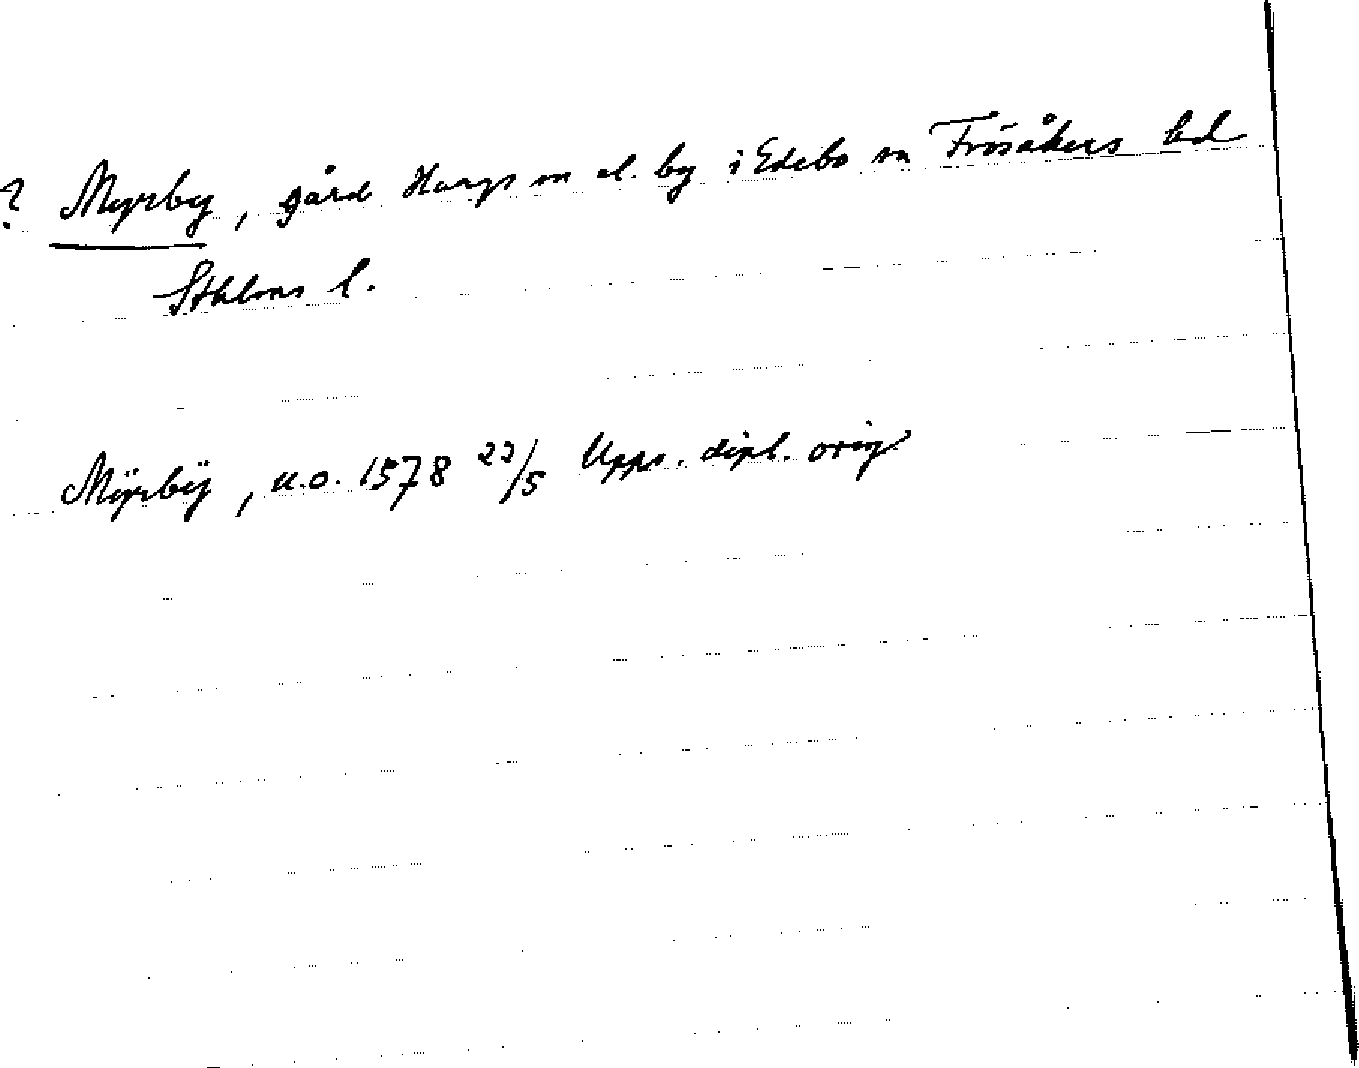 ? Myrby, gård Hargs sn el. by i Edebo sn Frösåkers hd
Sthlms l.
Mÿrbÿ, u.o. 1578 22/5 Upps. dipl. orig